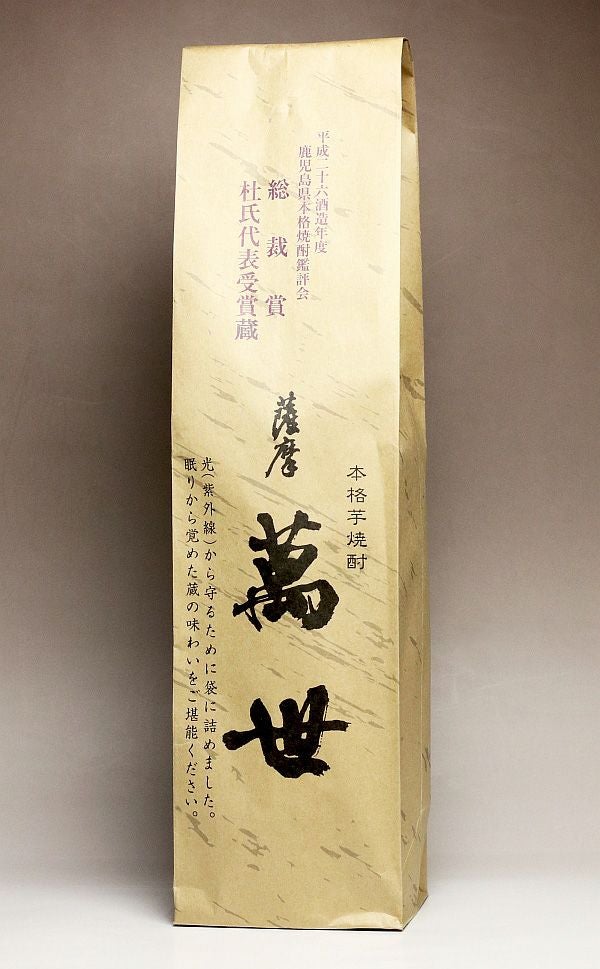 平成二十六酒造年度
鹿児島県本格焼酎鑑評会
総裁賞
杜氏代表受賞蔵
本格芋焼酎
薩摩
萬世
光（紫外線）から守るために袋に詰めました。
眠りから覚めた蔵の味わいをご堪能ください。